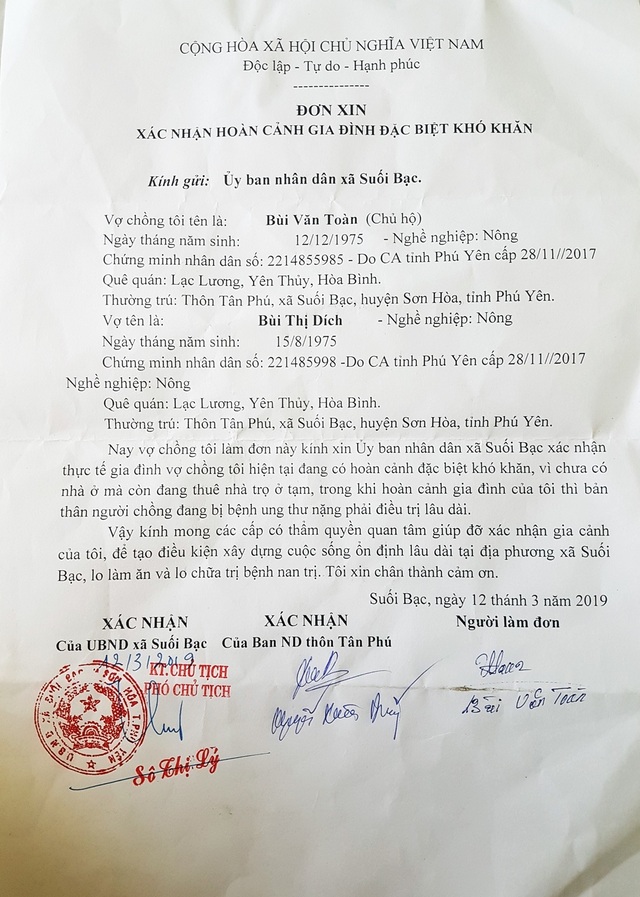 CỘNG HÒA XÃ HỘI CHỦ NGHĨA VIỆT NAM
Độc lập - Tự do - Hạnh phúc
---------------
ĐƠN XIN
XÁC NHẬN HOÀN CẢNH GIA ĐÌNH ĐẶC BIỆT KHÓ KHĂN
Kính gửi: Ủy ban nhân dân xã Suối Bạc.
Vợ chồng tôi tên là: Bùi Văn Toàn (Chủ hộ)
Ngày tháng năm sinh: 12/12/1975 - Nghề nghiệp: Nông
Chứng minh nhân dân số: 2214855985 - Do CA tỉnh Phú Yên cấp 28/11//2017
Quê quán: Lạc Lương, Yên Thủy, Hòa Bình.
Thường trú: Thôn Tân Phú, xã Suối Bạc, huyện Sơn Hòa, tỉnh Phú Yên.
Vợ tên là: Bùi Thị Dích - Nghề nghiệp: Nông
Ngày tháng năm sinh: 15/8/1975
Chứng minh nhân dân số: 221485998 -Do CA tỉnh Phú Yên cấp 28/11//2017
Nghề nghiệp: Nông
Quê quán: Lạc Lương, Yên Thủy, Hòa Bình.
Thường trú: Thôn Tân Phú, xã Suối Bạc, huyện Sơn Hòa, tỉnh Phú Yên.
Nay vợ chồng tôi làm đơn này kính xin Ủy ban nhân dân xã Suối Bạc xác nhận
thực tế gia đình vợ chồng tôi hiện tại đang có hoàn cảnh đặc biệt khó khăn, vì chưa có
nhà ở mà còn đang thuê nhà trọ ở tạm, trong khi hoàn cảnh gia đình của tôi thì bản
thân người chồng đang bị bệnh ung thư nặng phải điều trị lâu dài.
Vậy kính mong các cấp có thẩm quyền quan tâm giúp đỡ xác nhận gia cảnh
của tôi, để tạo điều kiện xây dựng cuộc sống ổn định lâu dài tại địa phương xã Suối
Bạc, lo làm ăn và lo chữa trị bệnh nan trị. Tôi xin chân thành cảm ơn.
Suối Bạc, ngày 12 tháng 3 năm 2019
XÁC NHẬN XÁC NHẬN Người làm đơn
Của UBND xã Suối Bạc Của Ban ND thôn Tân Phú
12/3/2019
KT. CHỦ TỊCH
PHÓ CHỦ TỊCH
Bùi Văn Toàn
Sô Thị Lý